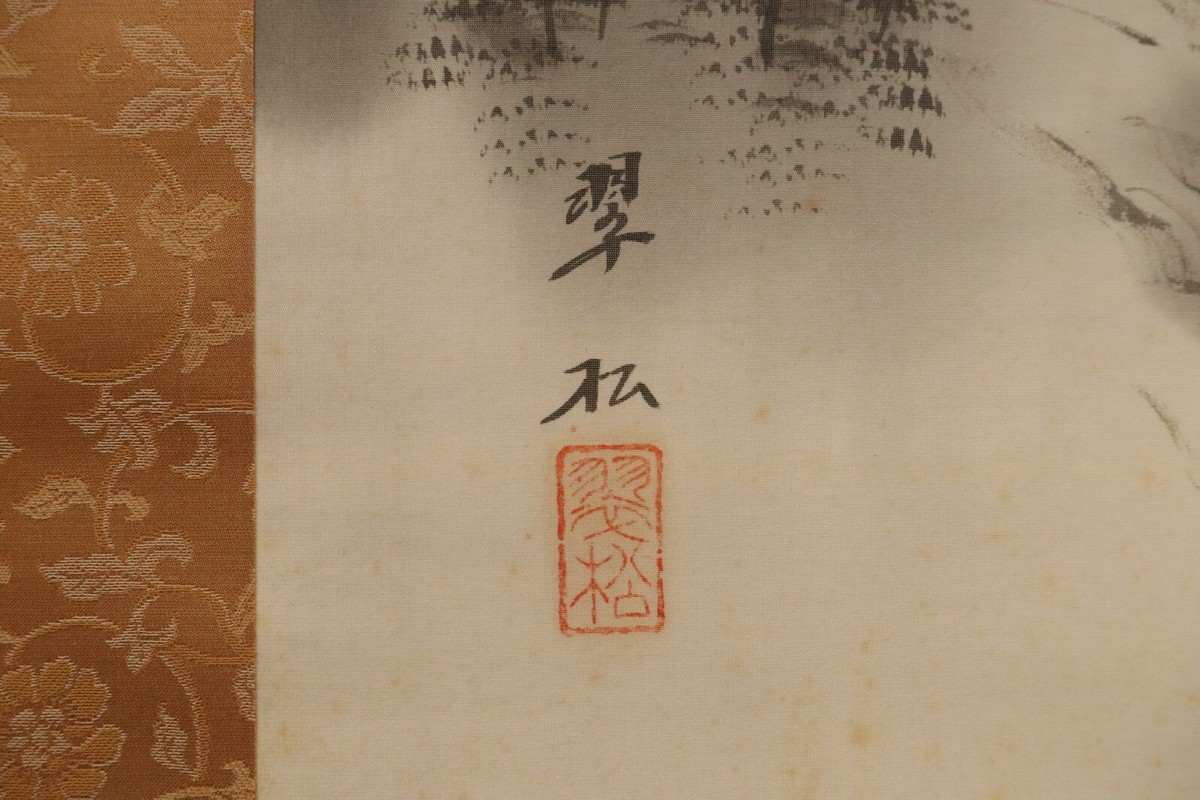 翠松
翠松